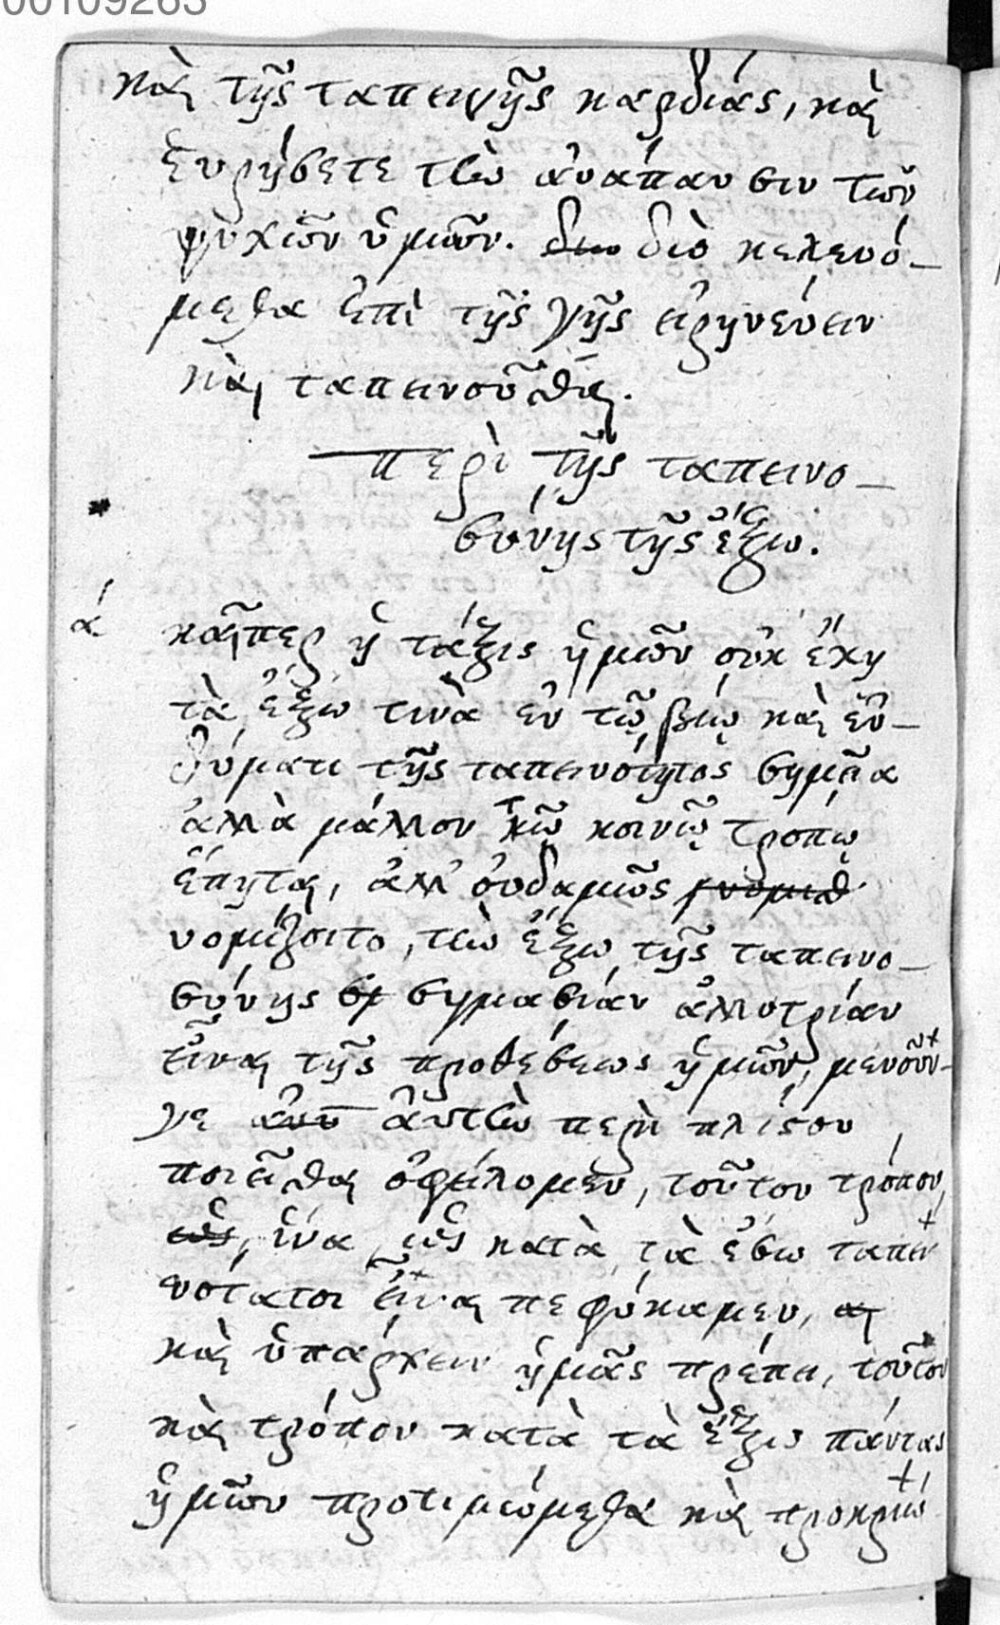 00109263
καὶ τῆς ταπεινῆς καρδίας, καὶ
ἑυρήσετε τὼ ἀνάπαυσιν τῶν
ψυχῶν ὑμῶν. διὸ κελευό-
μεθα ἐπὶ τῆς γῆς εἰρηνεύειν
καὶ ταπεινοῦσθαι.
περὶ τῆς ταπεινο-
σύνης τῆς ἔξω.
ά καῖπερ ἡ τάξις ἡμῶν οὐκ ἔχη
τὰ ἔξω τινὰ ἐν τῷ βίῳ καὶ ἐν-
δύματι τῆς ταπεινότητος σημεῖα
ἀλλὰ μάλλον τῷ κοινῷ τρόπῳ
ἕπηται, ἀλλ' ὀυδαμῶς
νομίζοιτο, τὼ ἔξω τῆς ταπεινο-
σύνης σημασίαν ἀλλοτρίαν
εἶναι τῆς προθέσεως ἡμῶν, μενοῦν-
γε ἀυτὼ περὶ πλίστου
ποιεῖσθαι ὀφείλομεν, τοῦτον τρόπον,
ἵνα, ὡς κατὰ τὰ ἔσω ταπει
νότατοι εἶναι πεφύκαμεν,
καὶ ὑπάρχειν ἡμᾶς πρέπει, τοῦτον
καὶ τρόπον κατὰ τὰ ἔξω πάντας
ἡμῶν προτιμώμεθα καὶ προκριώ